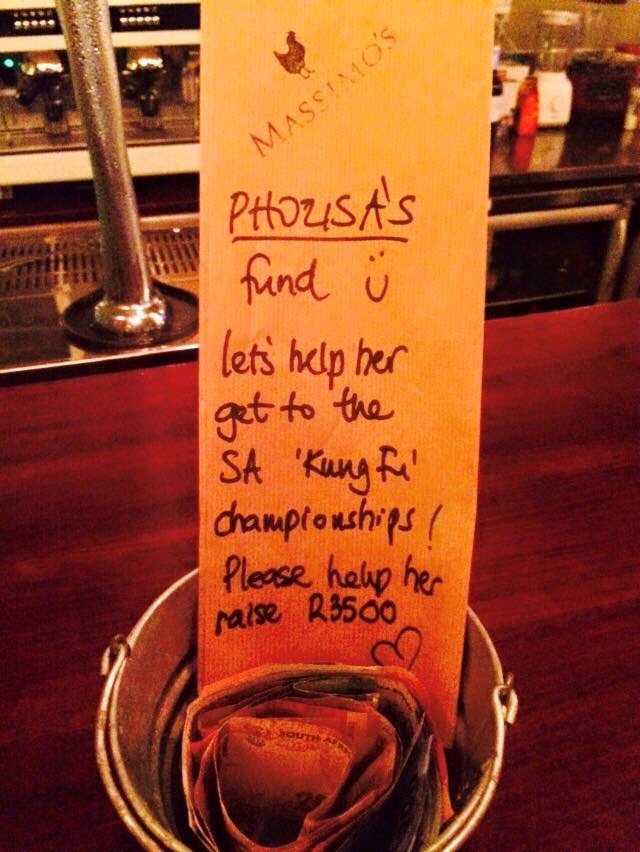 MASSIMO'S
PHOZISA'S
fund
let's help her
get to the
SA 'Kung Fu'
championships!
Please help her
raise R3500
SOUTH AFRI